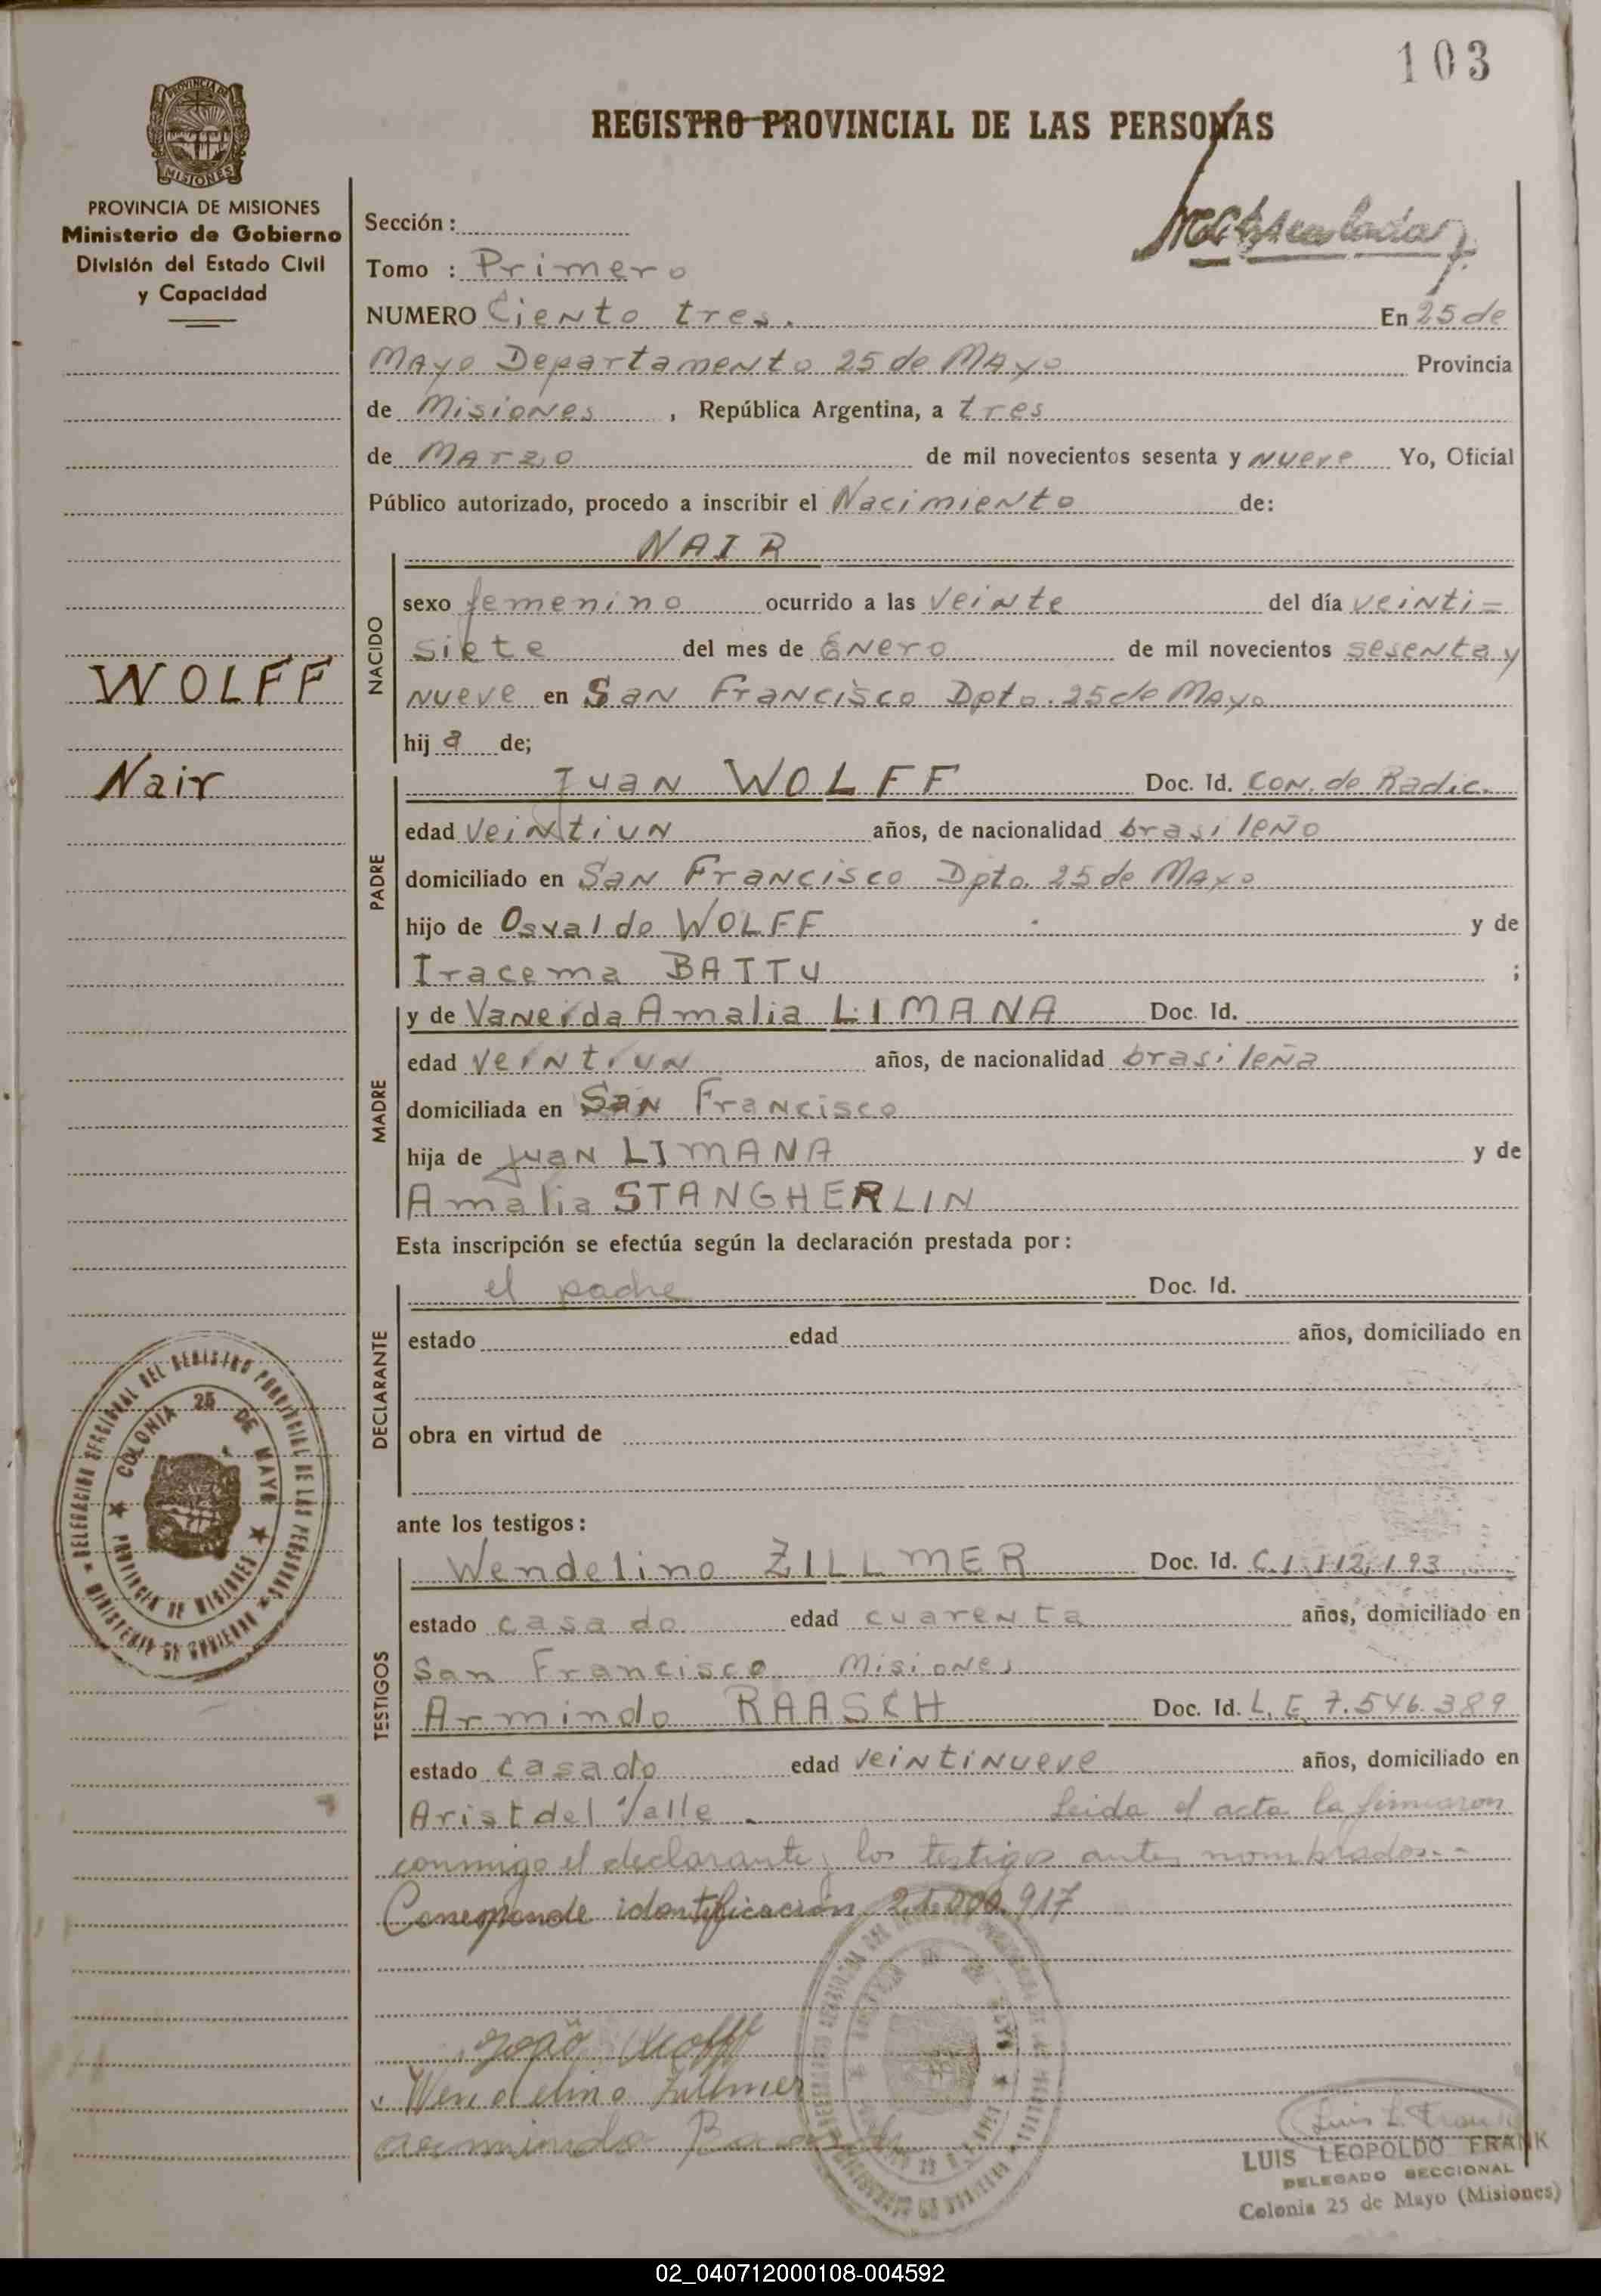 103
PROVINCIA DE
MISIONES
REGISTRO PROVINCIAL DE LAS PERSONAS
PROVINCIA DE MISIONES
Ministerio de Gobierno
División del Estado Civil
y Capacidad
Sección :
Tomo : Primero
NUMERO Ciento tres. En 25 de
Mayo Departamento 25 de Mayo Provincia
de Misiones , República Argentina, a tres
de Marzo de mil novecientos sesenta y nueve Yo, Oficial
Público autorizado, procedo a inscribir el Nacimiento de:
NAIR
NACIDO
sexo femenino ocurrido a las veinte del día veinti=
siete del mes de Enero de mil novecientos sesenta y
nueve en San Francisco Dpto. 25 de Mayo
hij a de;
WOLFF
Nair
PADRE
Juan WOLFF Doc. Id. Con. de Radic.
edad veintiun años, de nacionalidad brasileño
domiciliado en San Francisco Dpto. 25 de Mayo
hijo de Osvaldo WOLFF y de
Iracema BATTU ;
MADRE
y de Vaneida Amalia LIMANA Doc. Id.
edad veintiun años, de nacionalidad brasileña
domiciliada en San Francisco
hija de Juan LIMANA y de
Amalia STANGHERLIN
Esta inscripción se efectúa según la declaración prestada por:
DECLARANTE
el padre Doc. Id.
estado edad años, domiciliado en
obra en virtud de
DELEGACION SECCIONAL DEL REGISTRO PROVINCIAL DE LAS PERSONAS
MINISTERIO DE GOBIERNO
COLONIA 25 DE MAYO
PROVINCIA DE MISIONES
ante los testigos:
TESTIGOS
Wendelino ZILLMER Doc. Id. C.I. 112.193
estado casado edad cuarenta años, domiciliado en
San Francisco Misiones
Armindo RAASCH Doc. Id. L.E. 7.546.389
estado casado edad veintinueve años, domiciliado en
Arist del Valle. Leida el acta la firmaron
conmigo el declarante y los testigos antes nombrados.--
Corresponde identificación 21.000.917
João Wolff
Wendelino Zillmer
Armindo Raasch
Luis L. Frank
LUIS LEOPOLDO FRANK
DELEGADO SECCIONAL
Colonia 25 de Mayo (Misiones)
02_040712000108-004592